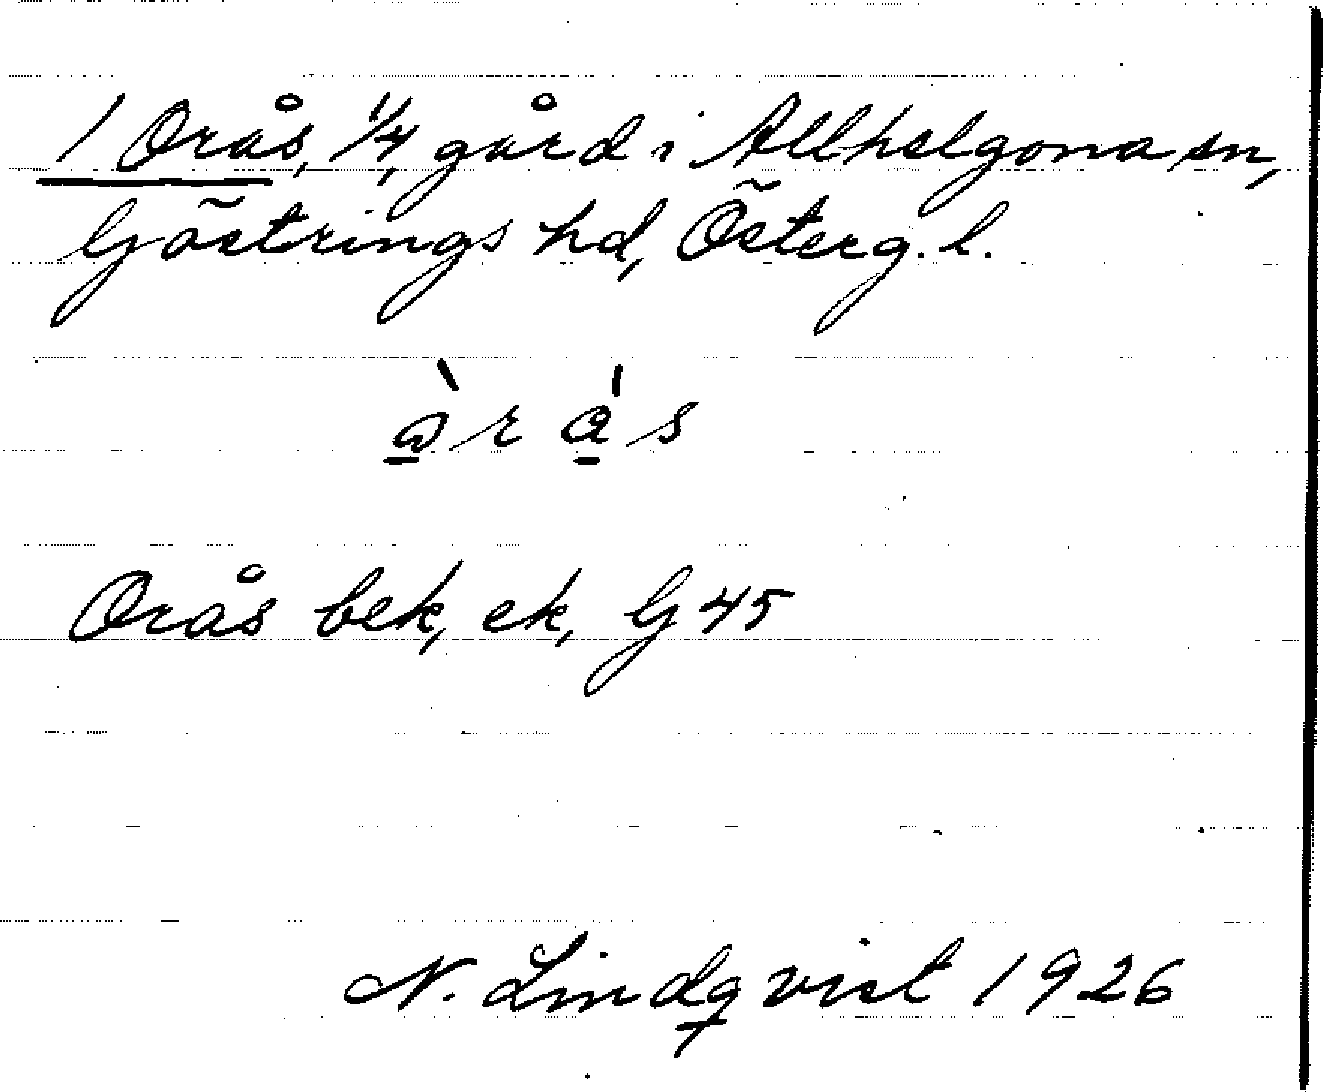 1 Orås, 1/4, gård i Allhelgona sn,
Göstrings hd, Österg. l.
Orås bek, ek, G 45
N. Lindqvist 1926